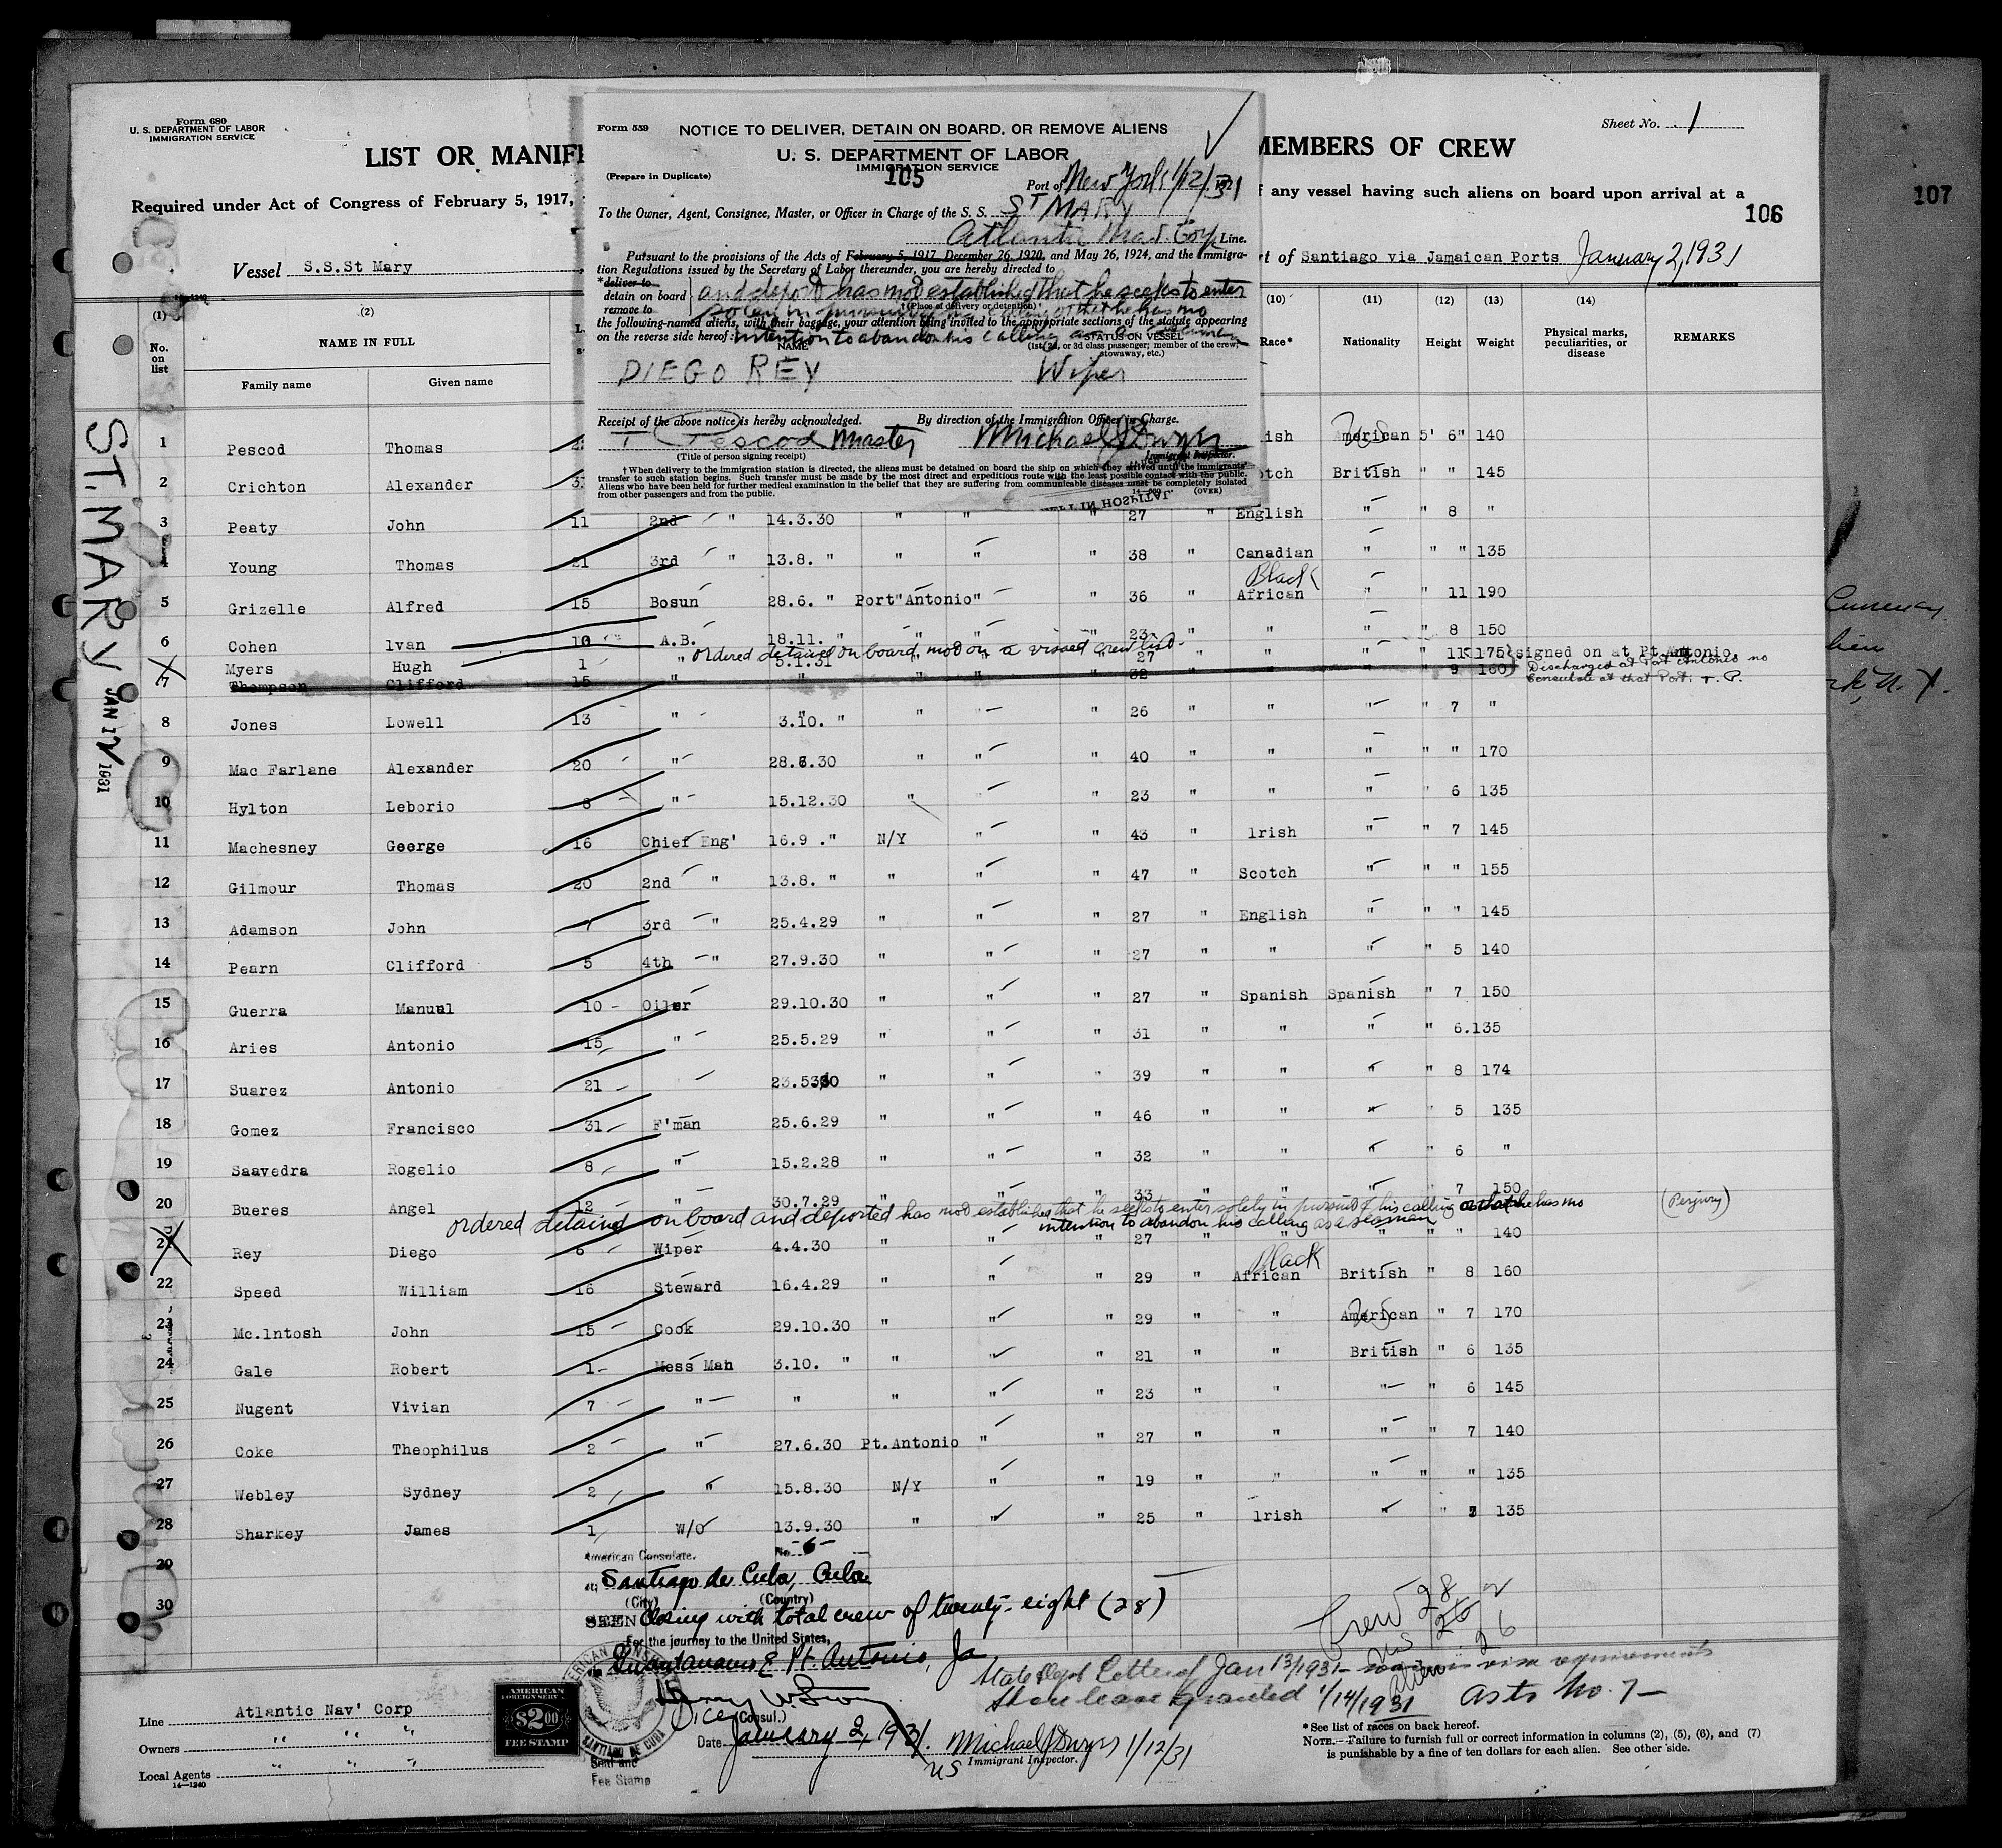 Form 680
U. S. DEPARTMENT OF LABOR
IMMIGRATION SERVICE
LIST OR MANIF
MEMBERS OF CREW
Sheet No. 1
Required under Act of Congress of February 5, 1917,
any vessel having such aliens on board upon arrival at a
106
107
Vessel S.S.St Mary
rt of Santiago via Jamaican Ports January 2, 1931
Form 539
NOTICE TO DELIVER, DETAIN ON BOARD, OR REMOVE ALIENS
U. S. DEPARTMENT OF LABOR
IMMIGRATION SERVICE
105
(Prepare in Duplicate)
Port of New York 1/12/31
To the Owner, Agent, Consignee, Master, or Officer in Charge of the S. S. ST MARY
Atlantic Nav. Corp Line.
Pursuant to the provisions of the Acts of February 5, 1917, December 26, 1920, and May 26, 1924, and the Immigra-
tion Regulations issued by the Secretary of Labor thereunder, you are hereby directed to
*deliver to
detain on board
remove to
and deport has not established that he seeks to enter
solely in pursuit of his calling or that he has no
†(Place of delivery or detention)
the following-named aliens, with their baggage, your attention being invited to the appropriate sections of the statute appearing
on the reverse side hereof: intention to abandon his calling as a seaman
NAME
STATUS ON VESSEL
(1st, 2d, or 3d class passenger; member of the crew;
stowaway, etc.)
DIEGO REY Wiper
Receipt of the above notice is hereby acknowledged. By direction of the Immigration Officer in Charge.
T Pescod Master Michael J Dwyer
(Title of person signing receipt) Immigrant Inspector.
†When delivery to the immigration station is directed, the aliens must be detained on board the ship on which they arrived until the immigrants'
transfer to such station begins. Such transfer must be made by the most direct and expeditious route with the least possible contact with the public.
Aliens who have been held for further medical examination in the belief that they are suffering from communicable diseases must be completely isolated
from other passengers and from the public.
(OVER)
(1) (2) (10) (11) (12) (13) (14)
No. on list
NAME IN FULL
Family name Given name
Race* Nationality Height Weight
Physical marks, peculiarities, or disease
REMARKS
ST. MARY JAN 12 1931
1 Pescod Thomas lish American 5' 6" 140
2 Crichton Alexander otch British " " 145
3 Peaty John 11 2nd " 14.3.30 " " " 27 " English " " 8 "
4 Young Thomas 21 3rd " 13.8. " " " " 38 " Canadian " " " 135
Black
5 Grizelle Alfred 15 Bosun 28.6. " Port"Antonio" " 36 " African " " 11 190
6 Cohen Ivan 10 A.B. 18.11. " " " " 23 " " " " 8 150
ordered detained on board, not on a visaed crew list.
Myers Hugh 1 " 5.1.31 " " " 27 " " " " 11 175 signed on at Pt. Antonio.
7 Thompson Clifford 15 " " " " " 32 " " " " 9 160 Discharged at Port Antonio no
Consulate at that Port. T. P.
8 Jones Lowell 13 " 3.10. " " " " 26 " " " " 7 "
9 Mac Farlane Alexander 20 " 28.6.30 " " " 40 " " " " " 170
10 Hylton Leborio 8 " 15.12.30 " " " 23 " " " " 6 135
11 Machesney George 16 Chief Eng' 16.9 ." N/Y " " 43 " Irish " " 7 145
12 Gilmour Thomas 20 2nd " 13.8. " " " " 47 " Scotch " " " 155
13 Adamson John 7 3rd " 25.4.29 " " " 27 " English " " " 145
14 Pearn Clifford 5 4th " 27.9.30 " " " 27 " " " " 5 140
15 Guerra Manuel 10 Oiler 29.10.30 " " " 27 " Spanish Spanish " 7 150
16 Aries Antonio 15 " 25.5.29 " " " 31 " " " " 6.135
17 Suarez Antonio 21 " " " " 39 " " " " 8 174
18 Gomez Francisco 31 F'man 25.6.29 " " " 46 " " " " 5 135
19 Saavedra Rogelio 8 " 15.2.28 " " " 32 " " " " 6 "
20 Bueres Angel 12 " 30.7.29 " " " 33 " " " " 7 150
ordered detained on board and deported has not established that he seeks to enter solely in pursuit of his calling or that he has no (Perjury)
intention to abandon his calling as a seaman
21 Rey Diego 6 Wiper 4.4.30 " " " 27 " " " " " 140
Black
22 Speed William 16 Steward 16.4.29 " " " 29 " African British " 8 160
23 Mc.lntosh John 15 Cook 29.10.30 " " " 29 " " American " 7 170
24 Gale Robert 1 Mess Man 3.10. " " " " 21 " " British " 6 135
25 Nugent Vivian 7 " " " " " 23 " " " " 6 145
26 Coke Theophilus 2 " 27.6.30 Pt.Antonio " " 27 " " " " 7 140
27 Webley Sydney 2 " 15.8.30 N/Y " " 19 " " " " " 135
28 Sharkey James 1 W/O 13.9.30 " " " 25 " Irish " " 135
29
30
American Consulate. No. 6
at Santiago de Cuba, Cuba
(City) (Country)
SEEN Closing with total crew of twenty-eight (28)
For the journey to the United States,
via Guantanamo & Pt. Antonio, Ja
Vice (Consul.)
Date January 2, 1931.
AMERICAN
FOREIGN SERV.
$2.00
FEE STAMP
SANTIAGO DE CUBA
Seal and
Fee Stamp
Crew 28
US 2
Alien 26
State Dept Letter of Jan 13/1931 visa requirements
Shore leave granted 1/14/1931 as to No. 7
Michael J Dwyer 1/12/31
Immigrant Inspector.
US
Line Atlantic Nav' Corp
Owners " " "
Local Agents " " "
14—1240
*See list of races on back hereof.
NOTE.—Failure to furnish full or correct information in columns (2), (5), (6), and (7)
is punishable by a fine of ten dollars for each alien. See other side.